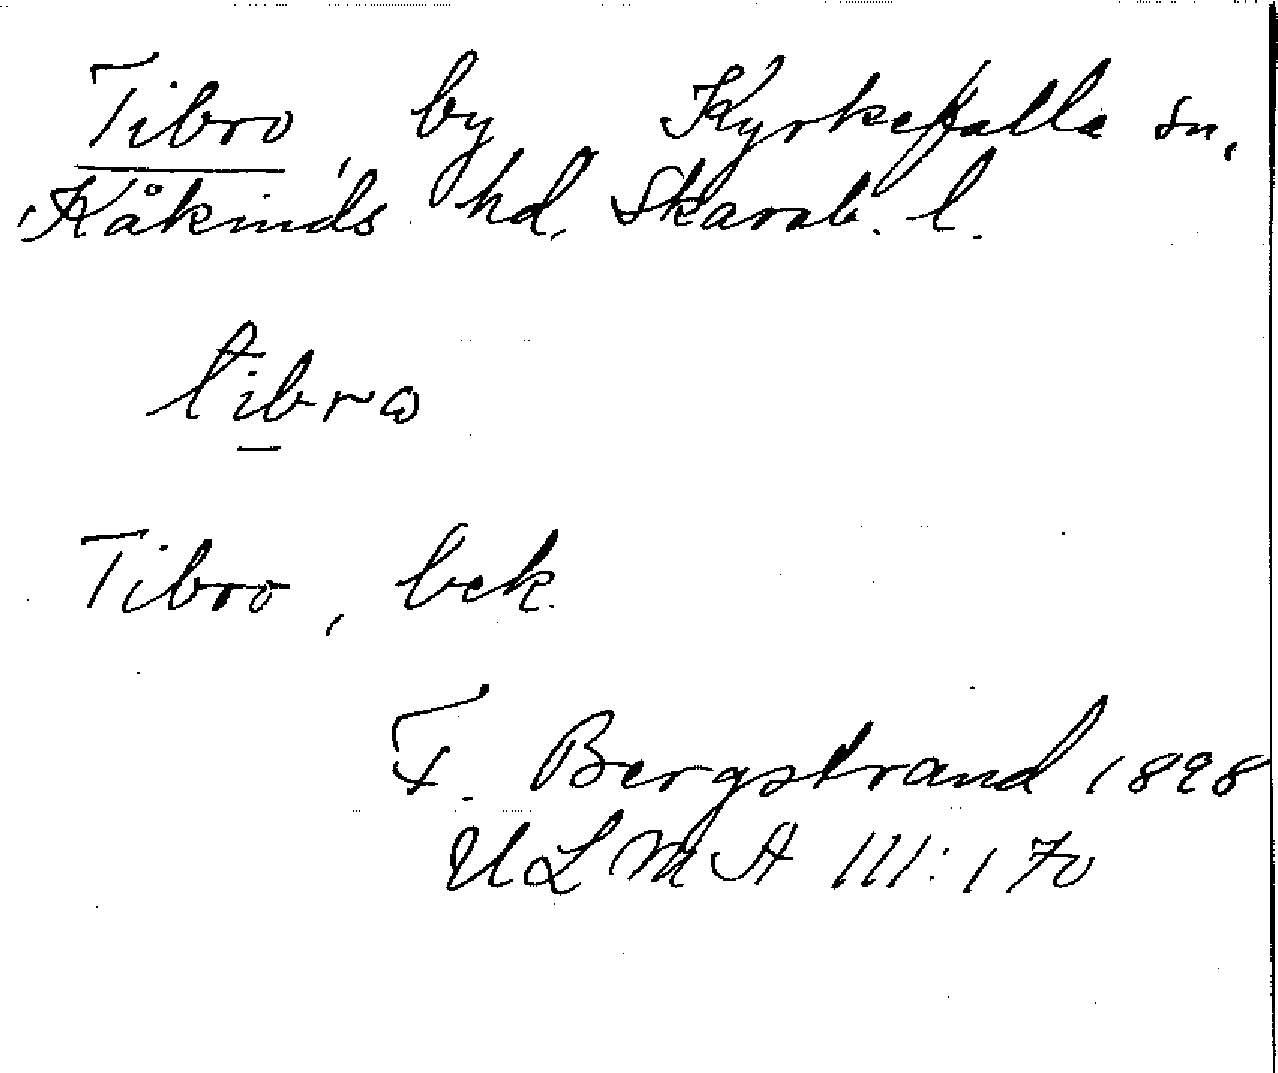 Tibro, by Kyrkefalla sn,
Kåkinds hd, Skarab. l.
tibrω
Tibro, bek.
F. Bergstrand 1898
ULMA 111:170